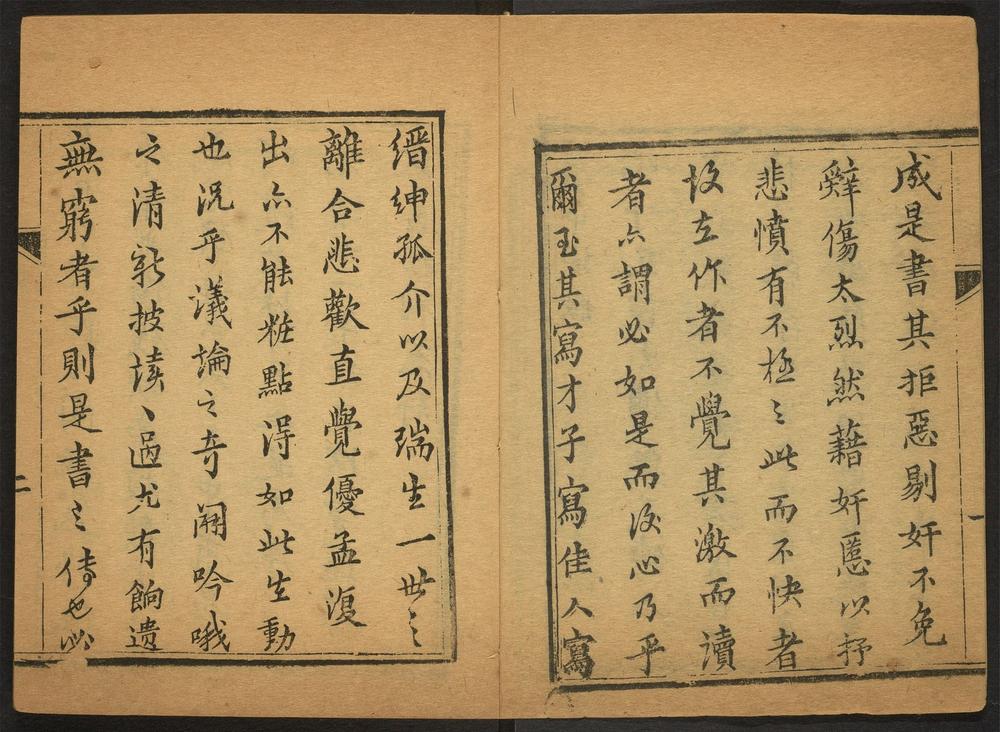 成是書其拒惡剔奸不免
辭傷太烈然藉奸慝以抒
悲憤有不極之此而不快者
故立作者不覺其激而讀
者亦謂必如是而後心乃乎
爾至其寫才子寫佳人寫
一
縉紳孤介以及瑞生一世之
離合悲歡直覺優孟復
出亦不能粧點得如此生動
也況乎議論之奇闢吟哦
之清新披讀丶過尤有餉遺
無窮者乎則是書之傳也必
二